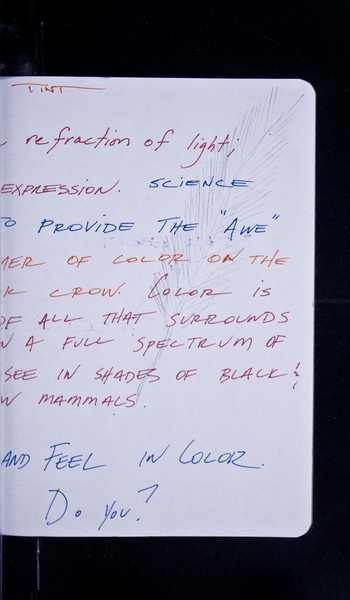 TINT
refraction of light;
EXPRESSION. SCIENCE
TO PROVIDE THE "AWE"
OF COLOR ON THE
CROW. COLOR IS
OF ALL THAT SURROUNDS
A FULL SPECTRUM OF
SEE IN SHADES OF BLACK &
MAMMALS.
AND FEEL IN COLOR.
Do you?